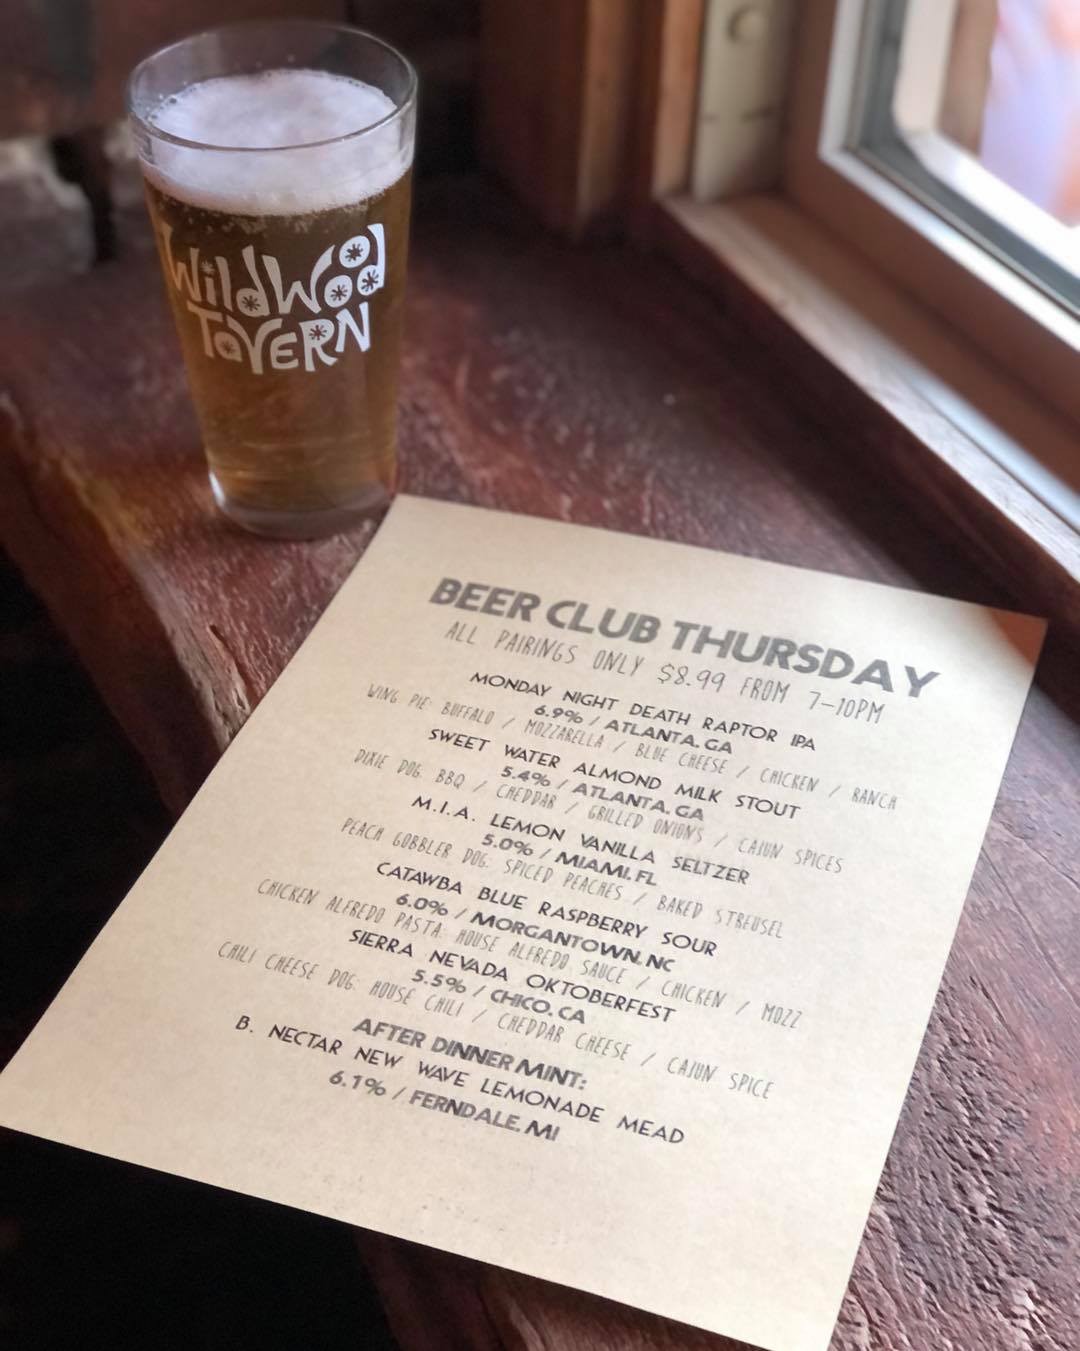 WildWood
TaVERN
BEER CLUB THURSDAY
ALL PAIRINGS ONLY $8.99 FROM 7-10PM
MONDAY NIGHT DEATH RAPTOR IPA
6.9% / ATLANTA, GA
WING PIE: BUFFALO / MOZZARELLA / BLUE CHEESE / CHICKEN / RANCH
SWEET WATER ALMOND MILK STOUT
5.4% / ATLANTA, GA
DIXIE DOG: BBQ / CHEDDAR / GRILLED ONIONS / CAJUN SPICES
M.I.A. LEMON VANILLA SELTZER
5.0% / MIAMI, FL
PEACH GOBBLER DOG: SPICED PEACHES / BAKED STREUSEL
CATAWBA BLUE RASPBERRY SOUR
6.0% / MORGANTOWN, NC
CHICKEN ALFREDO PASTA: HOUSE ALFREDO SAUCE / CHICKEN / MOZZ
SIERRA NEVADA OKTOBERFEST
5.5% / CHICO, CA
CHILI CHEESE DOG: HOUSE CHILI / CHEDDAR CHEESE / CAJUN SPICE
AFTER DINNER MINT:
B. NECTAR NEW WAVE LEMONADE MEAD
6.1% / FERNDALE, MI